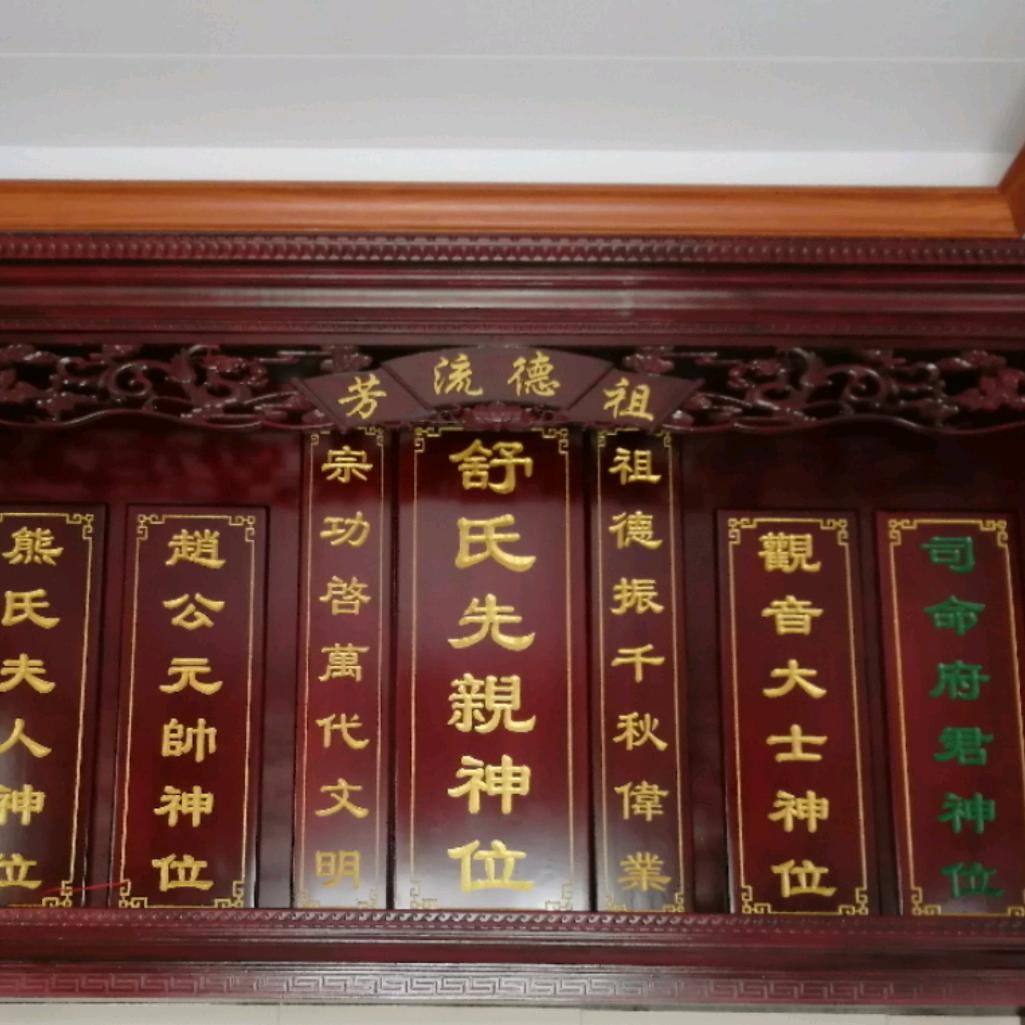 祖德流芳
司命府君神位
觀音大士神位
祖德振千秋偉業
舒氏先親神位
宗功啓萬代文明
趙公元帥神位
熊氏夫人神位